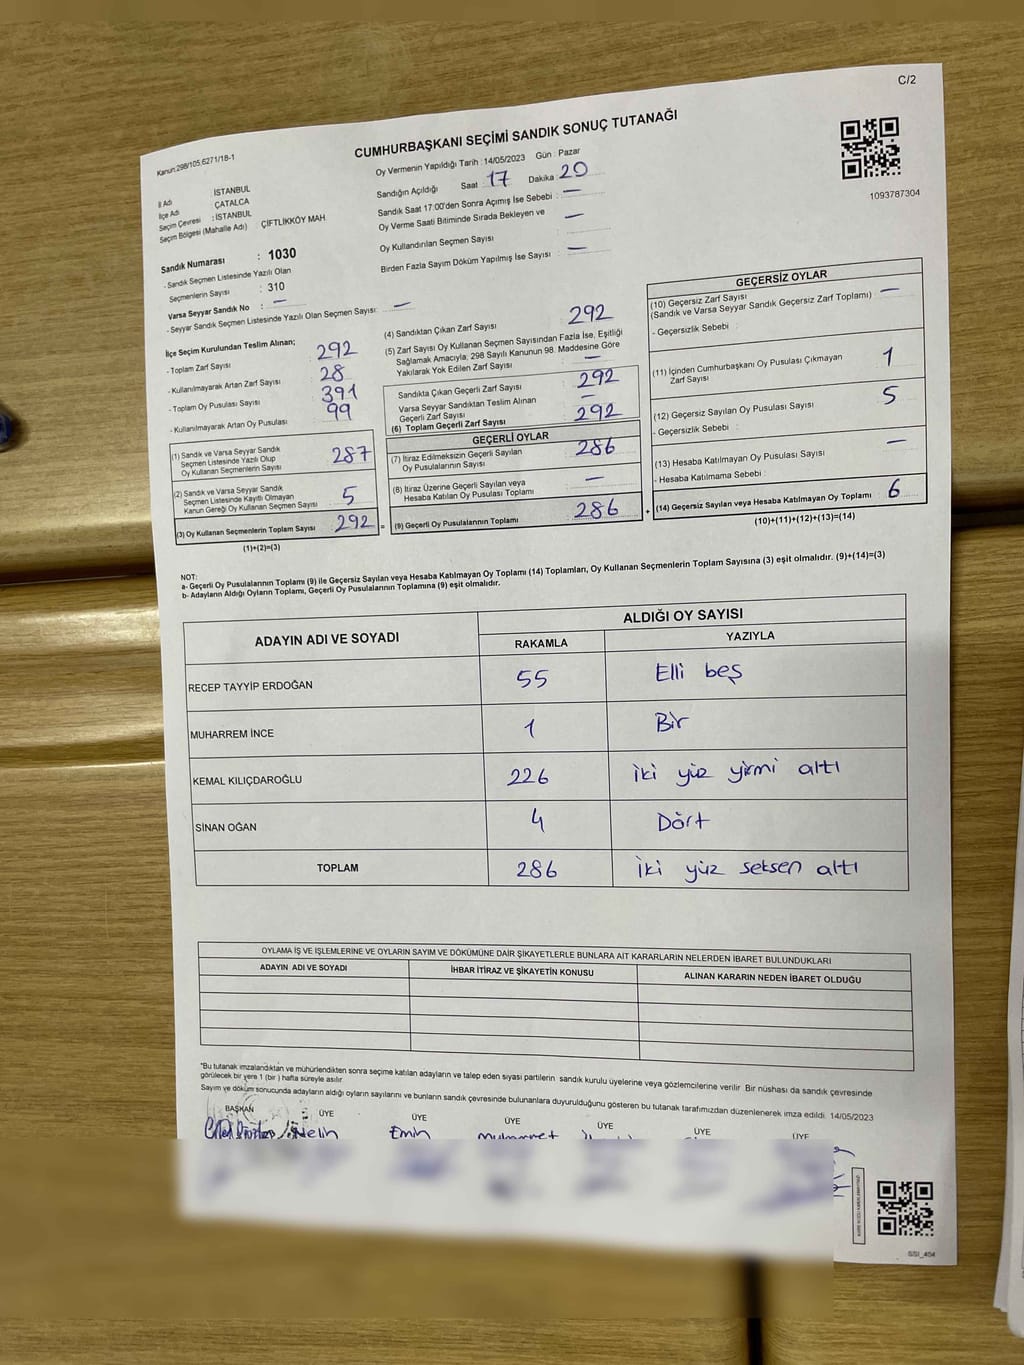 C/2
Kanun.298/105,6271/18-1
CUMHURBAŞKANI SEÇİMİ SANDIK SONUÇ TUTANAĞI
1093787304
İl Adı : İSTANBUL
İlçe Adı : ÇATALCA
Seçim Çevresi : İSTANBUL
Seçim Bölgesi (Mahalle Adı) : ÇİFTLİKKÖY MAH.
Oy Vermenin Yapıldığı Tarih : 14/05/2023 Gün : Pazar
Sandığın Açıldığı Saat : 17 Dakika : 20
Sandık Saat 17:00'den Sonra Açımış İse Sebebi : —
Oy Verme Saati Bitiminde Sırada Bekleyen ve
Oy Kullandırılan Seçmen Sayısı : —
Birden Fazla Sayım Döküm Yapılmış İse Sayısı : —
Sandık Numarası : 1030
- Sandık Seçmen Listesinde Yazılı Olan
Seçmenlerin Sayısı : 310
Varsa Seyyar Sandık No : —
- Seyyar Sandık Seçmen Listesinde Yazılı Olan Seçmen Sayısı: —
İlçe Seçim Kurulundan Teslim Alınan;
- Toplam Zarf Sayısı 292
- Kullanılmayarak Artan Zarf Sayısı 28
- Toplam Oy Pusulası Sayısı 391
- Kullanılmayarak Artan Oy Pusulası 99
(1) Sandık ve Varsa Seyyar Sandık
Seçmen Listesinde Yazılı Olup
Oy Kullanan Seçmenlerin Sayısı 287
(2) Sandık ve Varsa Seyyar Sandık
Seçmen Listesinde Kayıtlı Olmayan
Kanun Gereği Oy Kullanan Seçmen Sayısı 5
(3) Oy Kullanan Seçmenlerin Toplam Sayısı 292 =
(1)+(2)=(3)
(4) Sandıktan Çıkan Zarf Sayısı 292
(5) Zarf Sayısı Oy Kullanan Seçmen Sayısından Fazla İse, Eşitliği
Sağlamak Amacıyla; 298 Sayılı Kanunun 98. Maddesine Göre
Yakılarak Yok Edilen Zarf Sayısı —
Sandıkta Çıkan Geçerli Zarf Sayısı 292
Varsa Seyyar Sandıktan Teslim Alınan
Geçerli Zarf Sayısı —
(6) Toplam Geçerli Zarf Sayısı 292
GEÇERLİ OYLAR
(7) İtiraz Edilmeksizin Geçerli Sayılan
Oy Pusulalarının Sayısı 286
(8) İtiraz Üzerine Geçerli Sayılan veya
Hesaba Katılan Oy Pusulası Toplamı —
(9) Geçerli Oy Pusulalarının Toplamı 286 +
GEÇERSİZ OYLAR
(10) Geçersiz Zarf Sayısı
(Sandık ve Varsa Seyyar Sandık Geçersiz Zarf Toplamı) —
- Geçersizlik Sebebi :
(11) İçinden Cumhurbaşkanı Oy Pusulası Çıkmayan
Zarf Sayısı 1
(12) Geçersiz Sayılan Oy Pusulası Sayısı 5
- Geçersizlik Sebebi :
(13) Hesaba Katılmayan Oy Pusulası Sayısı —
- Hesaba Katılmama Sebebi :
(14) Geçersiz Sayılan veya Hesaba Katılmayan Oy Toplamı 6
(10)+(11)+(12)+(13)=(14)
NOT:
a- Geçerli Oy Pusulalarının Toplamı (9) ile Geçersiz Sayılan veya Hesaba Katılmayan Oy Toplamı (14) Toplamları, Oy Kullanan Seçmenlerin Toplam Sayısına (3) eşit olmalıdır. (9)+(14)=(3)
b- Adayların Aldığı Oyların Toplamı, Geçerli Oy Pusulalarının Toplamına (9) eşit olmalıdır.
ADAYIN ADI VE SOYADI ALDIĞI OY SAYISI
RAKAMLA YAZIYLA
RECEP TAYYİP ERDOĞAN 55 Elli beş
MUHARREM İNCE 1 Bir
KEMAL KILIÇDAROĞLU 226 iki yüz yirmi altı
SİNAN OĞAN 4 Dört
TOPLAM 286 iki yüz seksen altı
OYLAMA İŞ VE İŞLEMLERİNE VE OYLARIN SAYIM VE DÖKÜMÜNE DAİR ŞİKAYETLERLE BUNLARA AİT KARARLARIN NELERDEN İBARET BULUNDUKLARI
ADAYIN ADI VE SOYADI İHBAR İTİRAZ VE ŞİKAYETİN KONUSU ALINAN KARARIN NEDEN İBARET OLDUĞU
*Bu tutanak imzalandıktan ve mühürlendikten sonra seçime katılan adayların ve talep eden siyasi partilerin sandık kurulu üyelerine veya gözlemcilerine verilir. Bir nüshası da sandık çevresinde
görülecek bir yere 1 (bir ) hafta süreyle asılır.
Sayım ve döküm sonucunda adayların aldığı oyların sayılarını ve bunların sandık çevresinde bulunanlara duyurulduğunu gösteren bu tutanak tarafımızdan düzenlenerek imza edildi. 14/05/2023
BAŞKAN ÜYE ÜYE ÜYE ÜYE ÜYE ÜYE
Emin
SSI_404